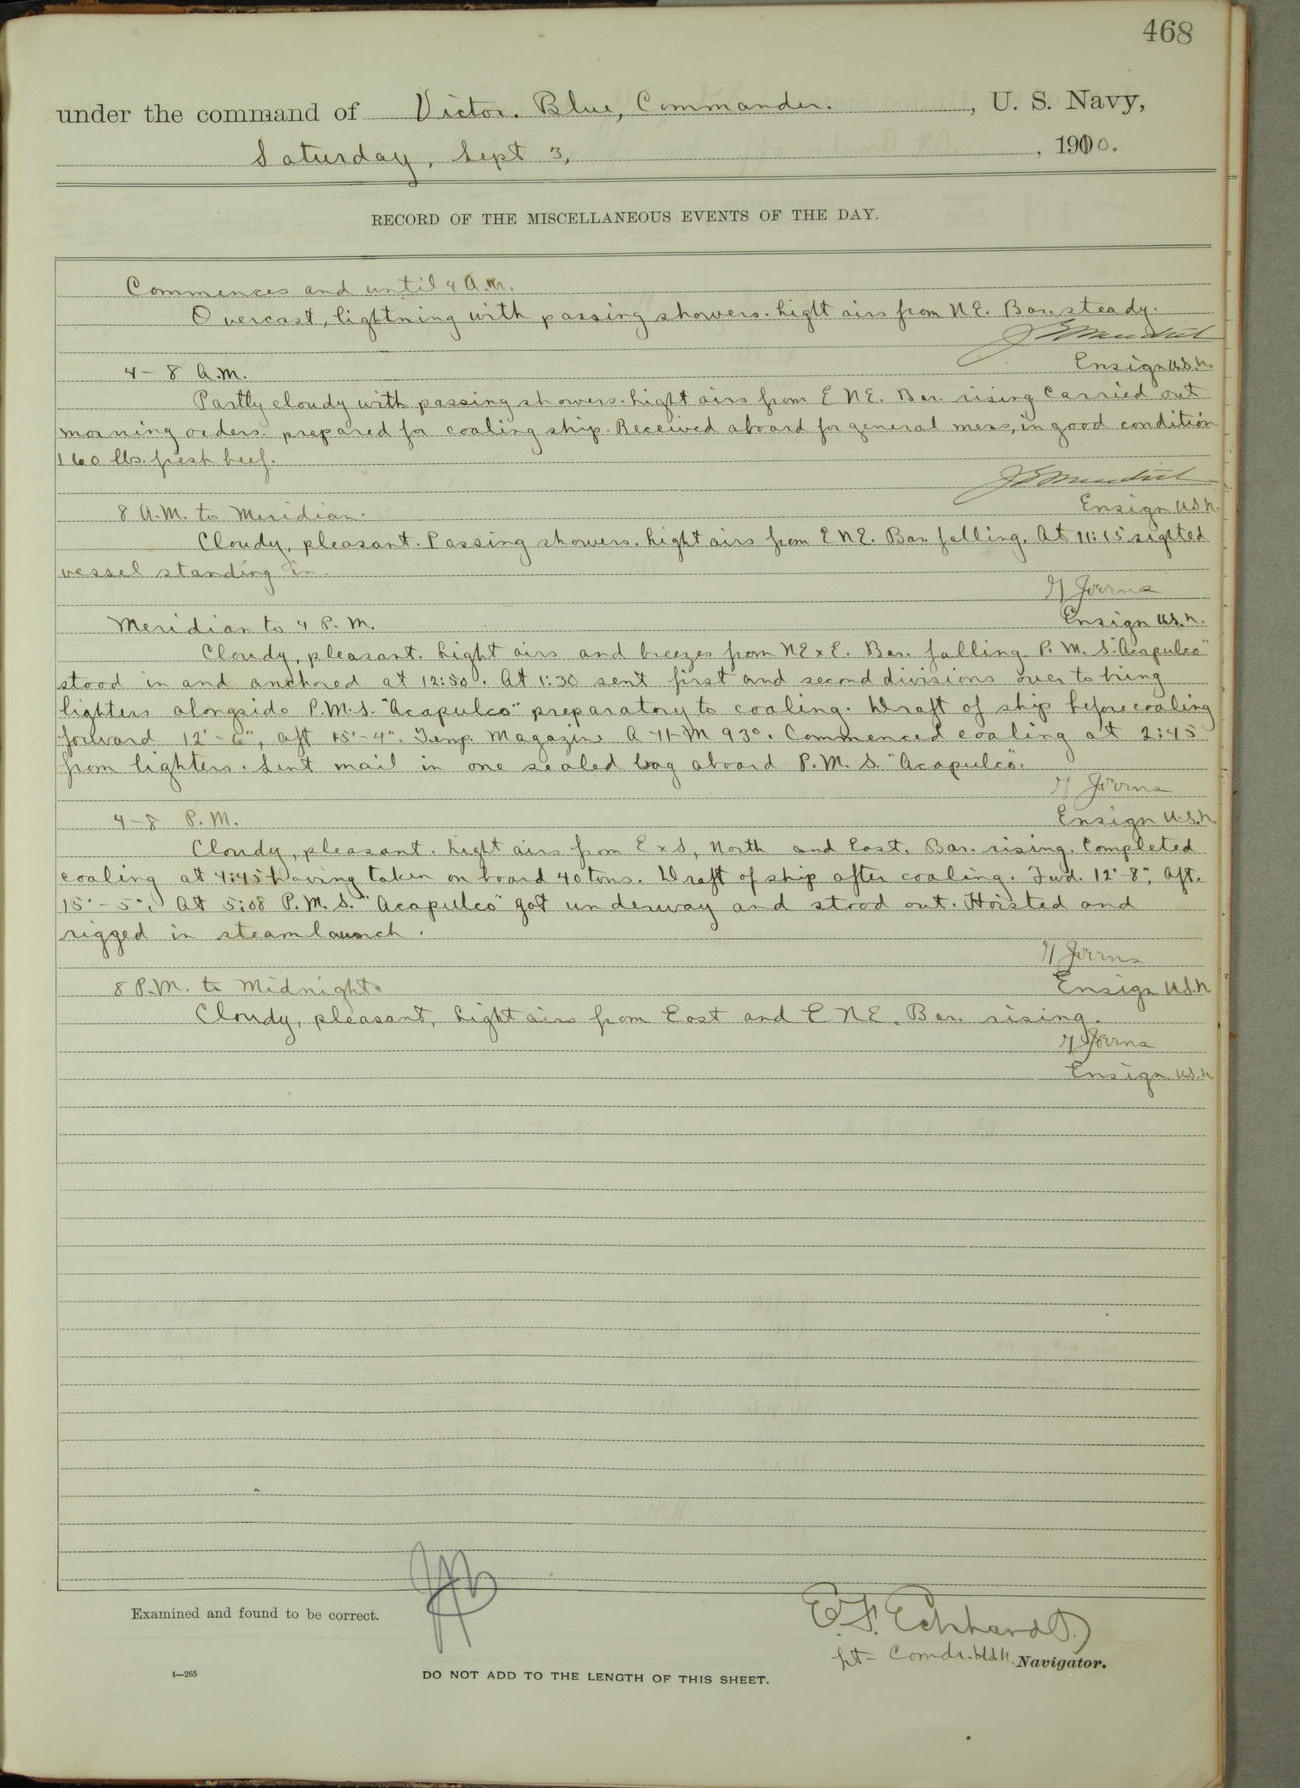 468
under the command of Victor. Blue, Commander. , U. S. Navy,
Saturday, Sept 3, , 1910.
RECORD OF THE MISCELLANEOUS EVENTS OF THE DAY.
Commences and until 4 A.M.
Overcast, lightning with passing showers. Light airs from NE. Bar. steady.
4 - 8 A.M.
Ensign U.S.N.
Partly cloudy with passing showers. Light airs from E N E. Bar. rising Carried out
morning orders. prepared for coaling ship. Received aboard for general mess, in good condition
160 lbs. fresh beef.
8 A.M. to Meridian.
Ensign U.S.N.
Cloudy, pleasant. Passing showers. Light airs from E N E. Bar. falling. At 11:15 sighted
vessel standing in.
Meridian to 4 P.M.
Ensign U.S.N.
Cloudy, pleasant. Light airs and breezes from NE x E. Bar. falling. P. M. S. "Acapulco"
stood in and anchored at 12:50. At 1:30 sent first and second divisions over to bring
lighters alongside P.M.S. "Acapulco" preparatory to coaling. Draft of ship before coaling
forward 12'-6", aft 15'-4". Temp. Magazine A-71-M 93°. Commenced coaling at 2:45
from lighters. Sent mail in one sealed bag aboard P. M. S. "Acapulco".
4-8 P.M.
Ensign U.S.N.
Cloudy, pleasant. Light airs from E x S, North and East. Bar. rising. Completed
coaling at 4:45 having taken on board 40 tons. Draft of ship after coaling. Fwd. 12'-8", Aft.
15'-5". At 5:08 P. M. S. "Acapulco" got underway and stood out. Hoisted and
rigged in steam launch.
8 P.M. to Midnight.
Ensign U.S.N.
Cloudy, pleasant, Light airs from East and E N E. Bar. rising.
Ensign U.S.N.
Examined and found to be correct.
E. F. Eckhardt.
Lt- Comdr. U.S.N. Navigator.
4—265
DO NOT ADD TO THE LENGTH OF THIS SHEET.